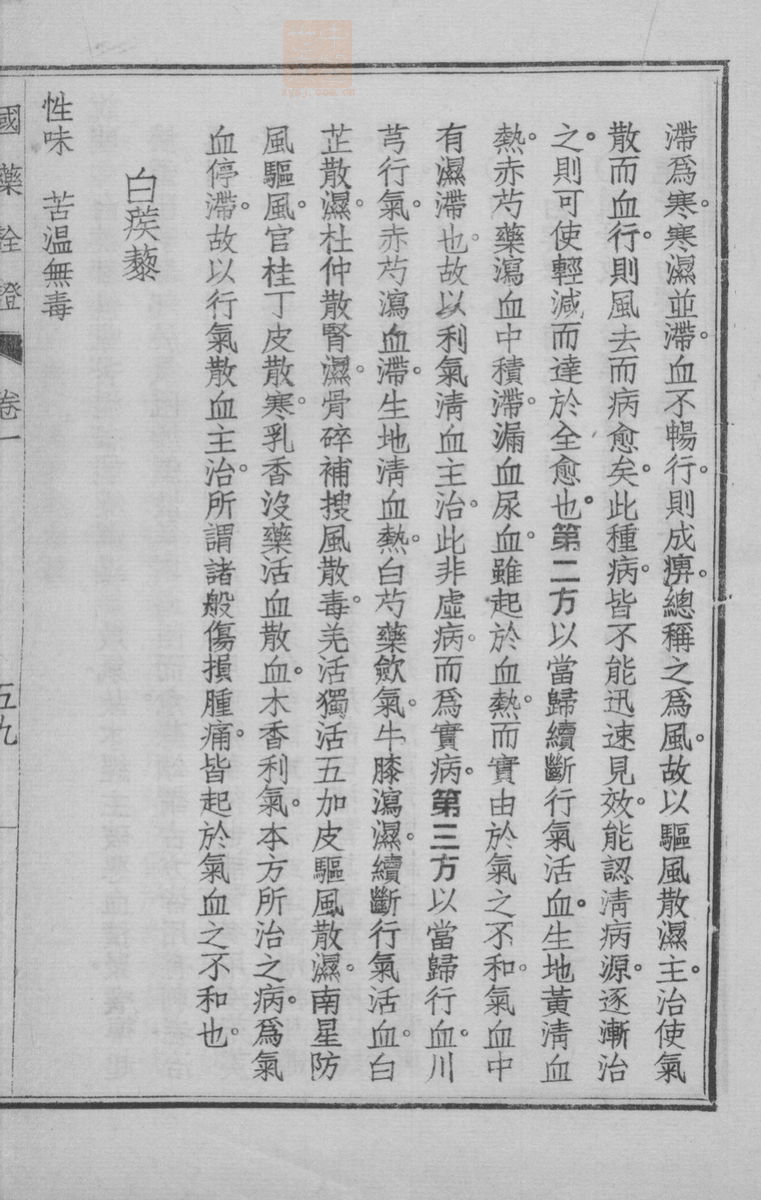 滯爲寒。寒濕並滯。血不暢行。則成痹。總稱之爲風。故以驅風散濕主治。使氣
散而血行。則風去而病愈矣。此種病。皆不能迅速見效。能認淸病源。逐漸治
之。則可使輕減而達於全愈也。第二方以當歸續斷行氣活血。生地黃淸血
熱。赤芍藥瀉血中積滯。漏血尿血。雖起於血熱。而實由於氣之不和。氣血中
有濕滯也。故以利氣淸血主治。此非虛病。而爲實病。第三方以當歸行血。川
芎行氣。赤芍瀉血滯。生地淸血熱。白芍藥斂氣。牛膝瀉濕。續斷行氣活血。白
芷散濕。杜仲散腎濕。骨碎補搜風散毒。羌活獨活五加皮驅風散濕。南星防
風驅風。官桂丁皮散寒。乳香沒藥活血散血。木香利氣。本方所治之病。爲氣
血停滯。故以行氣散血主治。所謂諸般傷損腫痛。皆起於氣血之不和也。
白蒺藜
性味　苦温無毒
國藥詮證　卷一　五九